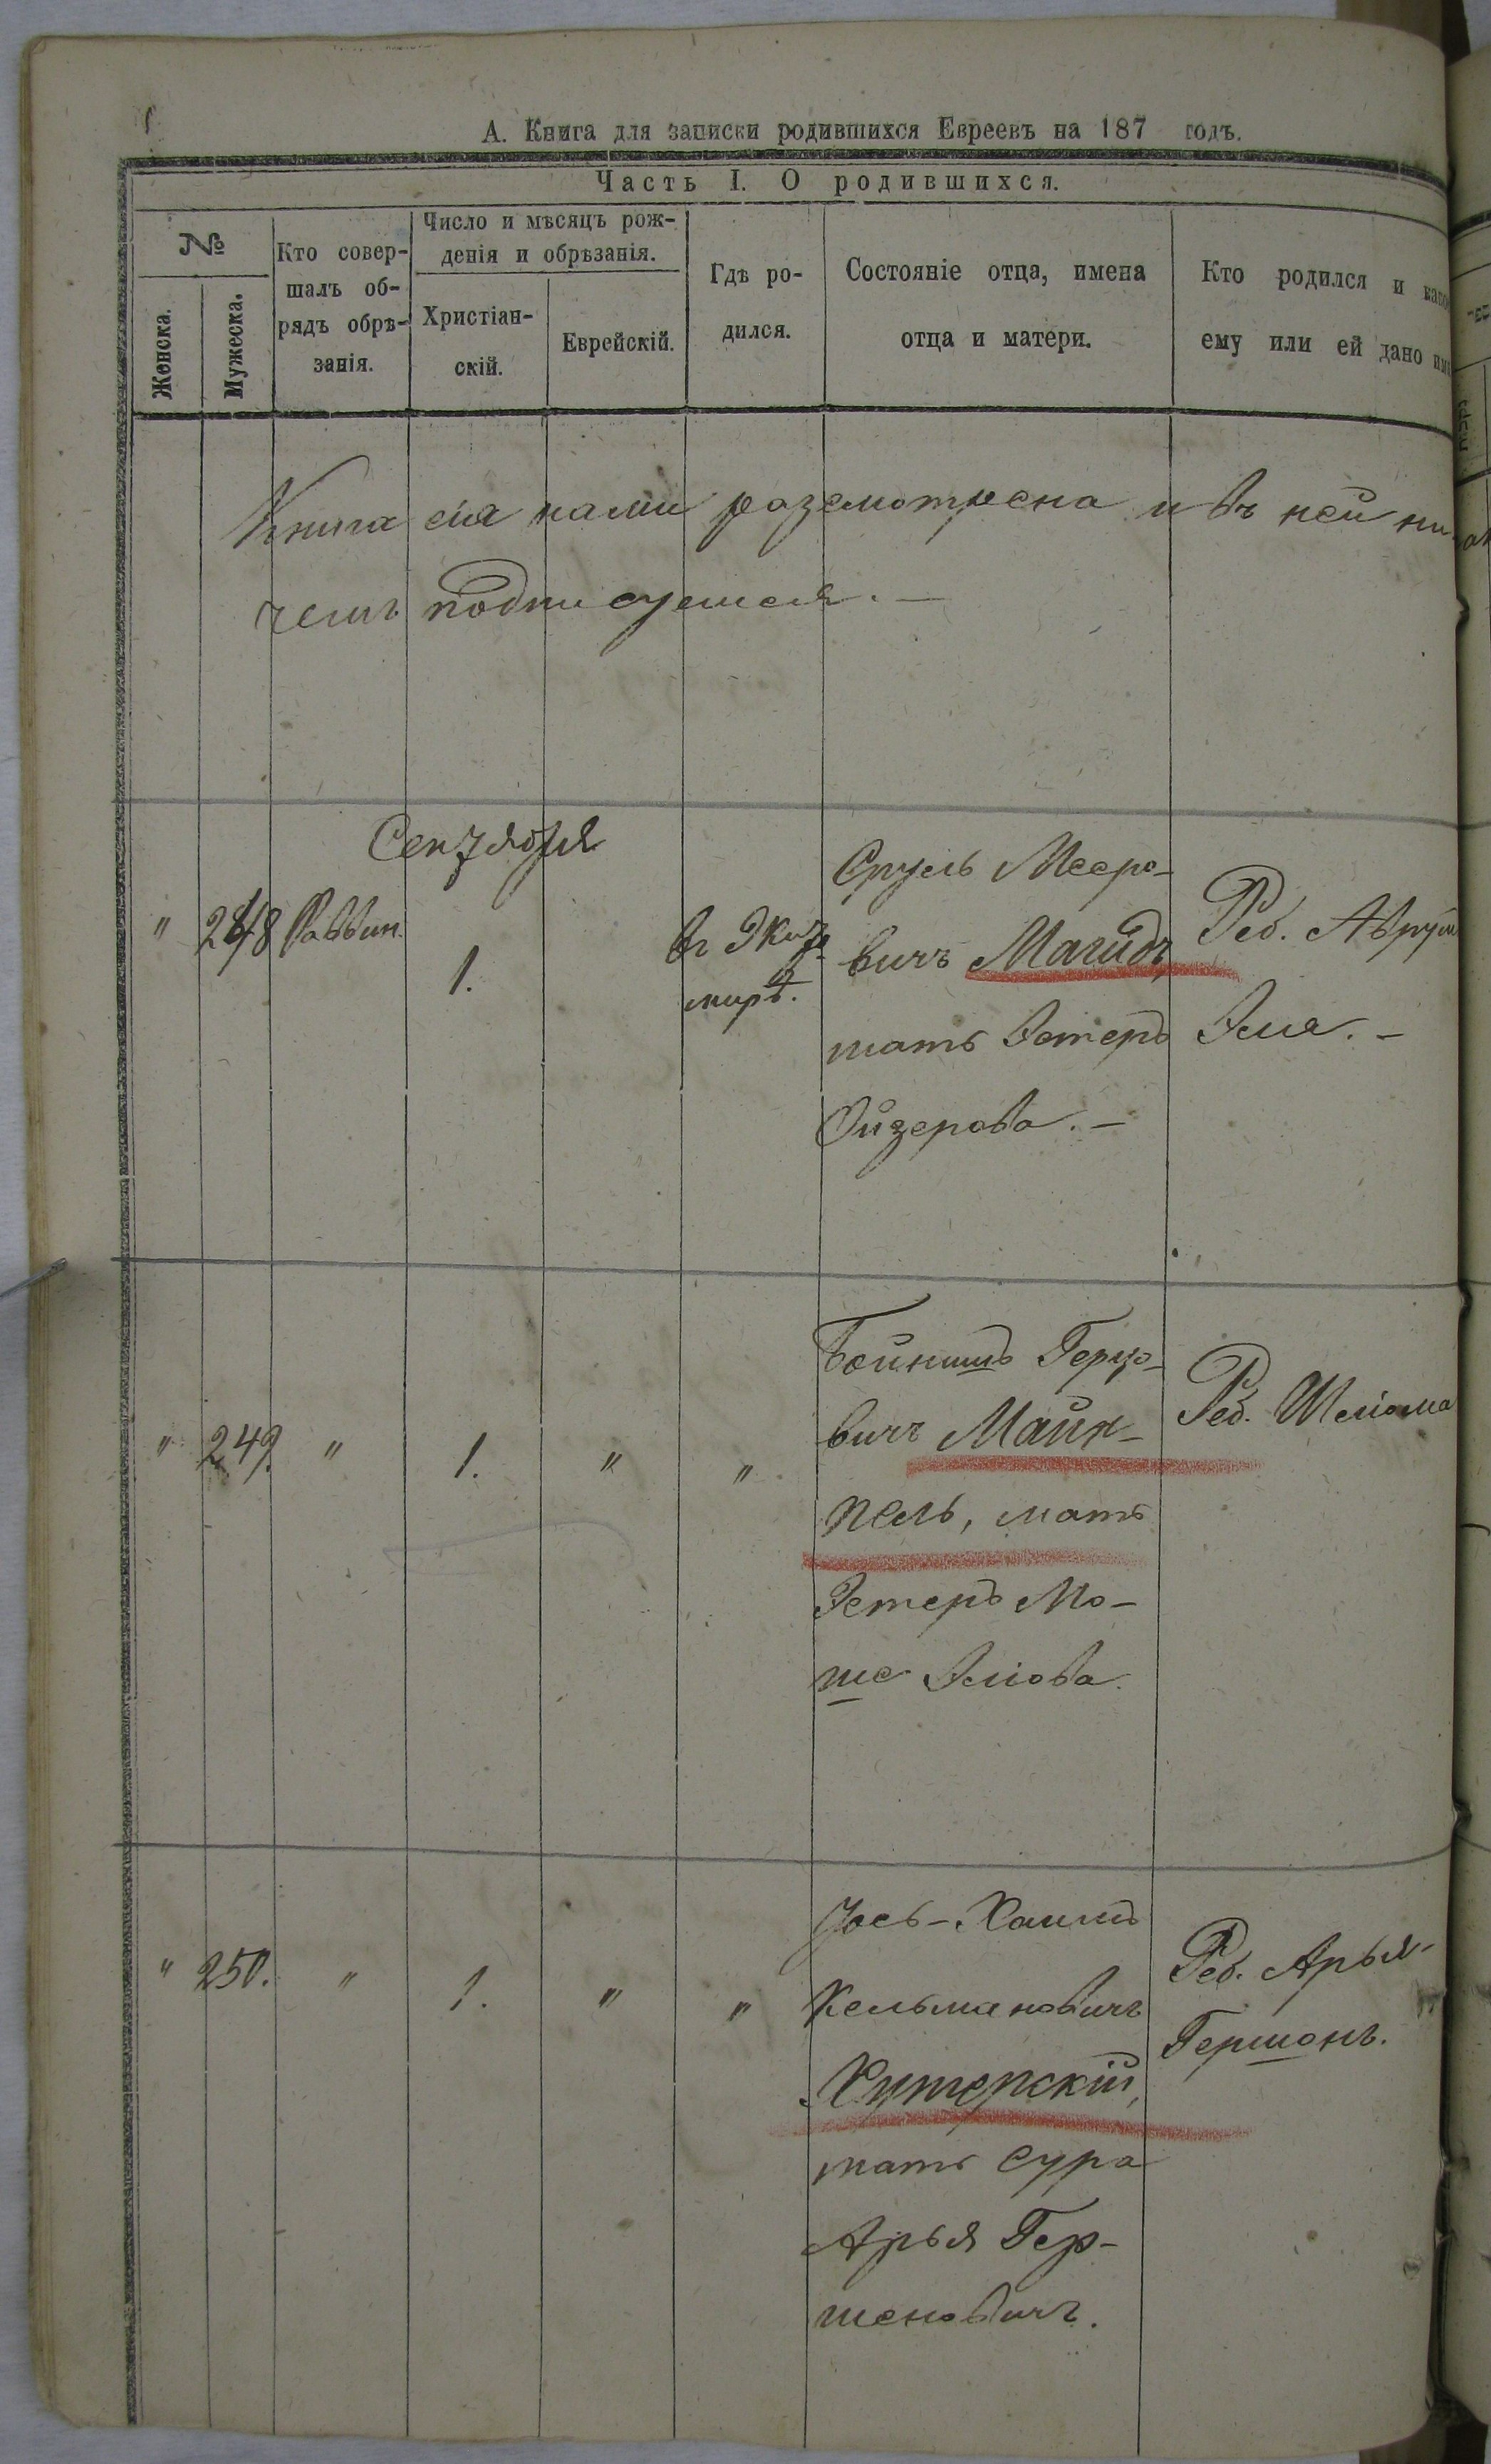 А. Книга для записки родившихся Евреевъ на 187 годъ.
Часть I. О родившихся.
№
Женска.
Мужеска.
Кто совер-
шалъ об-
рядъ обрѣ-
занія.
Число и мѣсяцъ рож-
денія и обрѣзанія.
Христіан-
скій.
Еврейскій.
Гдѣ ро-
дился.
Состояніе отца, имена
отца и матери.
Кто родился и како
ему или ей дано им
Книга сія нами разсмотрена и въ ней ни
чемъ подписуемся. —
Сентября
" 248 Раввин.
1.
Сруль Мееро-
вичъ Магидъ,
мать Эстеръ
Ойзерова. —
Реб. Аврум
Эля. —
" 249. " 1. " "
Бейнишъ Герцо-
вичъ Майн-
пель, мать
Эстеръ Мо-
ше Эліова.
Реб. Шліома
" 250. " 1. " "
Іось-Хаимъ
Кельмановичъ
Хутерскій,
мать Сура
Арья Гер-
шеновичъ.
Реб. Арья-
Гершонъ.